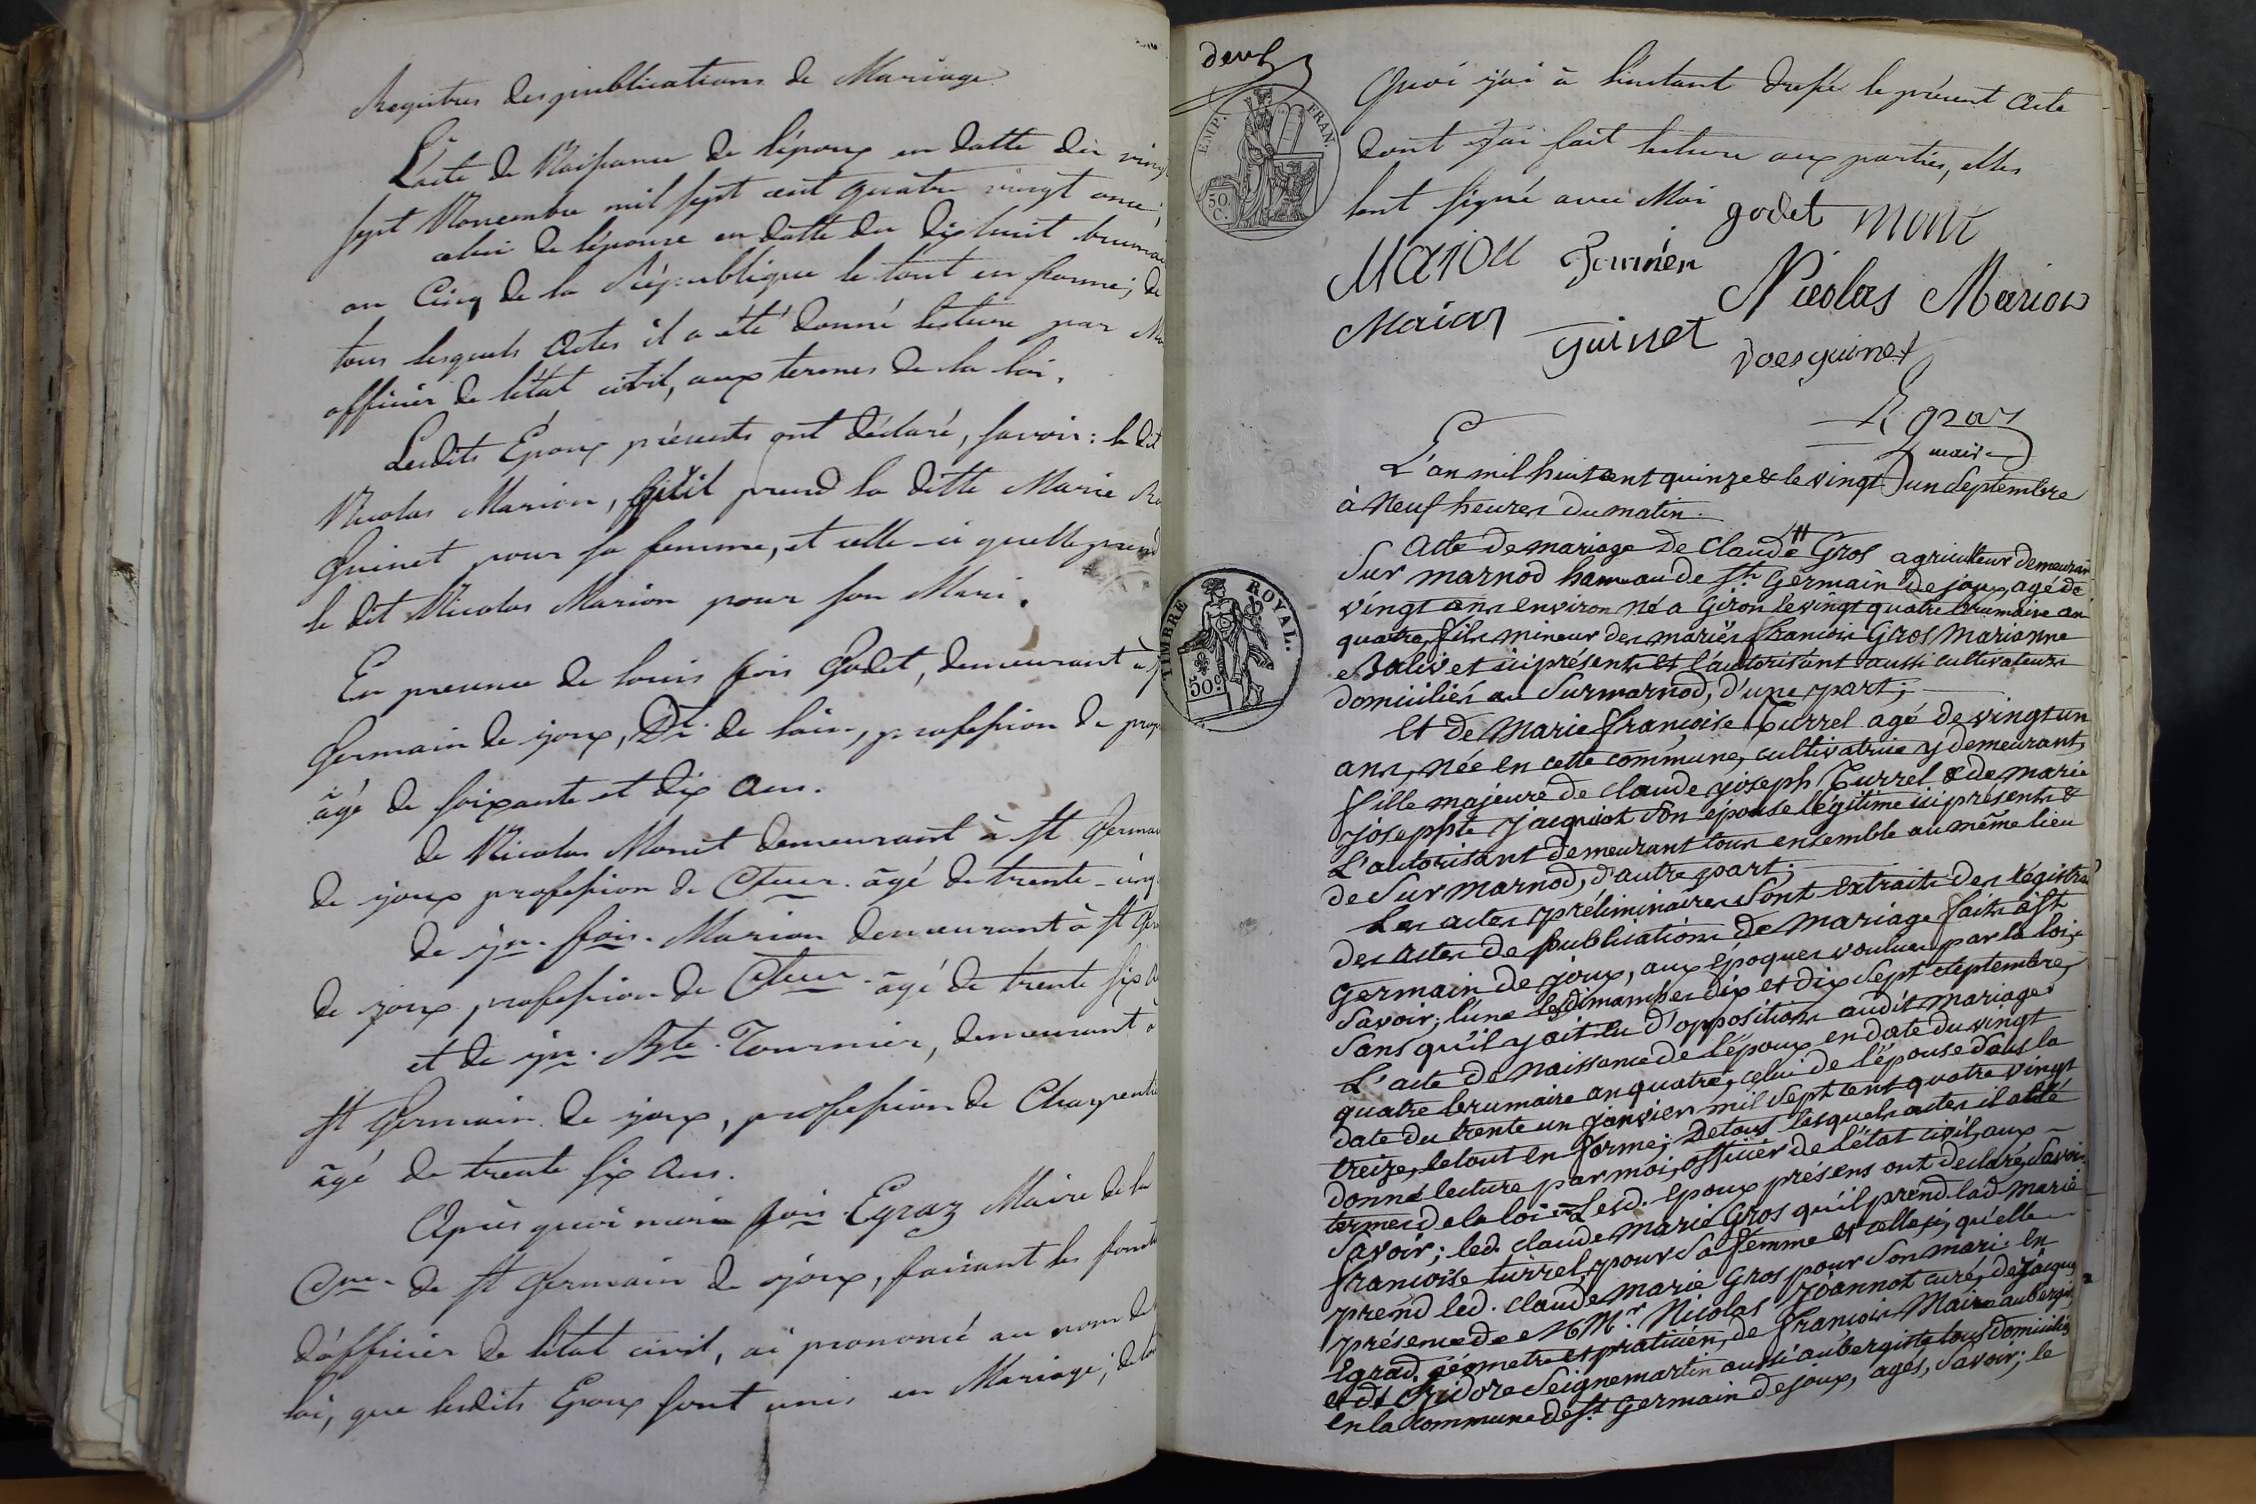 Registres des publications de Mariage
L'acte de Naissance de l'époux en datte du vingt
sept Novembre mil sept cent quatre vingt onze,
celui de l'épouse en datte du dix huit brumai
an Cinq de la République le tout en forme; de
tous lesquels Actes il a été donné lecture par M
officier de l'état civil, aux termes de la loi.
Lesdits Epoux présents ont déclaré, savoir: le dit
Nicolas Marion, qu'il prend la ditte Marie
Guinet pour sa femme, et celle-ci quelle prend
le dit Nicolas Marion pour son Mari.
En presence de louis fois Godet, demeurant à
Germain de joux, Dt. de lain, profession de prop
âgé de soixante et dix Ans.
de Nicolas Monet demeurant à St Germai
de joux profession de Cteur. âgé de trente-cinq
de jn. fois. Marion demeurant à St Ger
de joux profession de Cteur. âgé de trente six a
et de jn. Bte. Tournier, demeurant à
St Germain de joux, profession de Charpentie
âgé de trente six Ans.
Après quoi moi fois Egraz Maire de la
Cne. de St Germain de joux, faisant les fonct
d'officier de l'état civil, ai prononcé au nom de
loi, que lesdits Epoux sont unis en Mariage; de to
deux
EMP. FRAN.
50 C.
Quoi j'ai à l'instant dressé le présent Acte
dont j'ai fait lecture aux parties, elles
lont signé avec Moi godet monet
Marion Tournier Nicolas Marion
Marion guinet
Egraz
maire
L'an mil huit cent quinze & le vingt un septembre
à Neuf heures du matin.
TIMBRE ROYAL.
50 c
Acte de mariage de Claude # Gros agriculteur demeurant
Sur marnod hameau de St. Germain de joux, agé de
vingt ans environ né a Giron le vingt quatre brumaire an
quatre, fils mineur des mariés francois Gros Marianne
Balivet ici présents et l'autorisant aussi cultivateurs
domiciliés au Surmarnod, d'une part;
Et de Marie françoise Turrel agé de vingt un
ans, née en cette commune, cultivatrice y demeurant,
fille majeure de claude joseph Turrel & de marie
josephte jacquiot son épouse légitime ici présents &
L'autorisant demeurant tous ensemble au même lieu
de Sur marnod, d'autre part;
Les actes préliminaires sont extraits des régistres
des actes de publications de mariage faits à St
Germain de joux, aux époques voulues par la loi
savoir; l'une les dimanches dix et dix sept septembre
sans qu'il y ait eu d'oppositions audit mariage:
L'acte de naissance de l'époux en date du vingt
quatre brumaire an quatre, celui de l'épouse dans la
date du trente un janvier mil sept cent quatre vingt
treize, le tout en forme; de tous lesquels actes il a été
donné lecture par moi, officier de l'état civil, aux
termes de la loi = Lesd. époux présens ont declaré, savoi
Savoir; led. claude marie Gros qu'il prend lad marie
francoise turrel, pour sa femme et celle ci, qu'elle
prend led. claude marie Gros pour son mari: en
présence de M Mr. Nicolas joannot curé, de jacques
Egraz, géometre et praticien, de françois Maire aubergis
et d isidore Seignemartin aussi aubergiste tous domiciliés
en la commune de St. Germain de joux, agés, Savoir; le